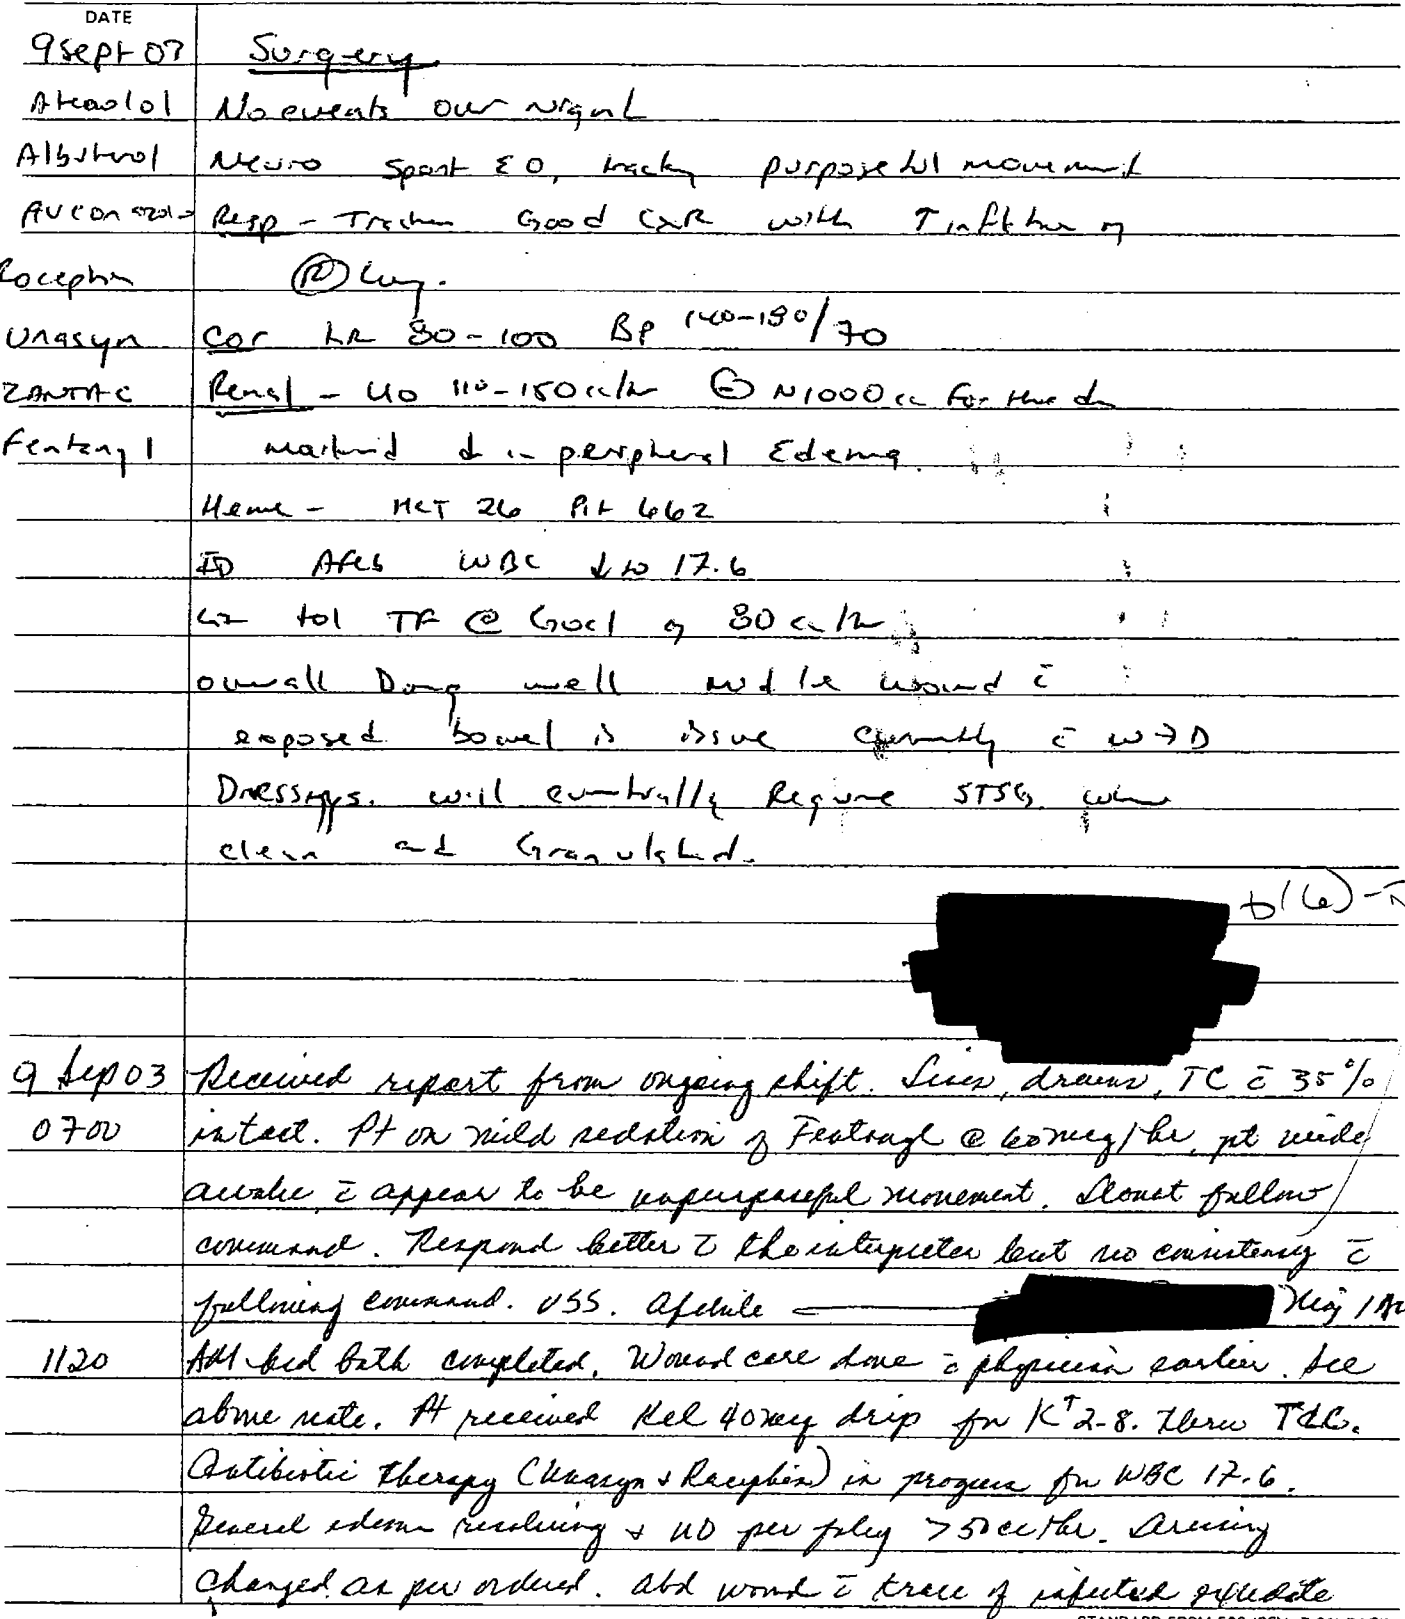 DATE
9 Sept 03 Surgery
Atenolol No events over night
Albuterol Neuro Spont EO, tracks purposeful movement
Resp - Good CXR with
Rocephin (R) Lung.
Unasyn Cor HR 80-100 BP 140-180/70
ZANTAC Renal - UO 110-150 cc/hr ⊖ ~1000 cc For the day
Fentanyl marked ↓ in peripheral Edema.
Heme - HCT 26 Plt 662
ID Afeb WBC ↓ to 17.6
GI tol TF @ Goal of 80 cc/hr
overall Doing well midline wound c̄
exposed bowel is issue currently c̄ W→D
Dressings. will eventually Require STSG when
clean and Granulated.
b(6)-
9 Sep 03 Received report from ongoing shift. Lines, drains, TC c̄ 35%
0700 intact. Pt on mild sedation of Fentanyl @ 60 mcg/hr, pt wide
awake c̄ appear to be unpurposeful movement. Donot follow
command. Respond better c̄ the interpreter but no consistency c̄
following command. VSS. Afebrile Maj / AN
1120 AM bed bath completed. Wound care done c̄ physician earlier. See
above note. Pt received Kcl 40 meq drip for K+ 2.8. thru
Antibiotic therapy (Unasyn + Rocephin) in progress for WBC 17.6.
General edema resolving + UO per foley >50cc/hr. Dressing
changed as per ordered. Abd wound c̄ trace of infected exudate